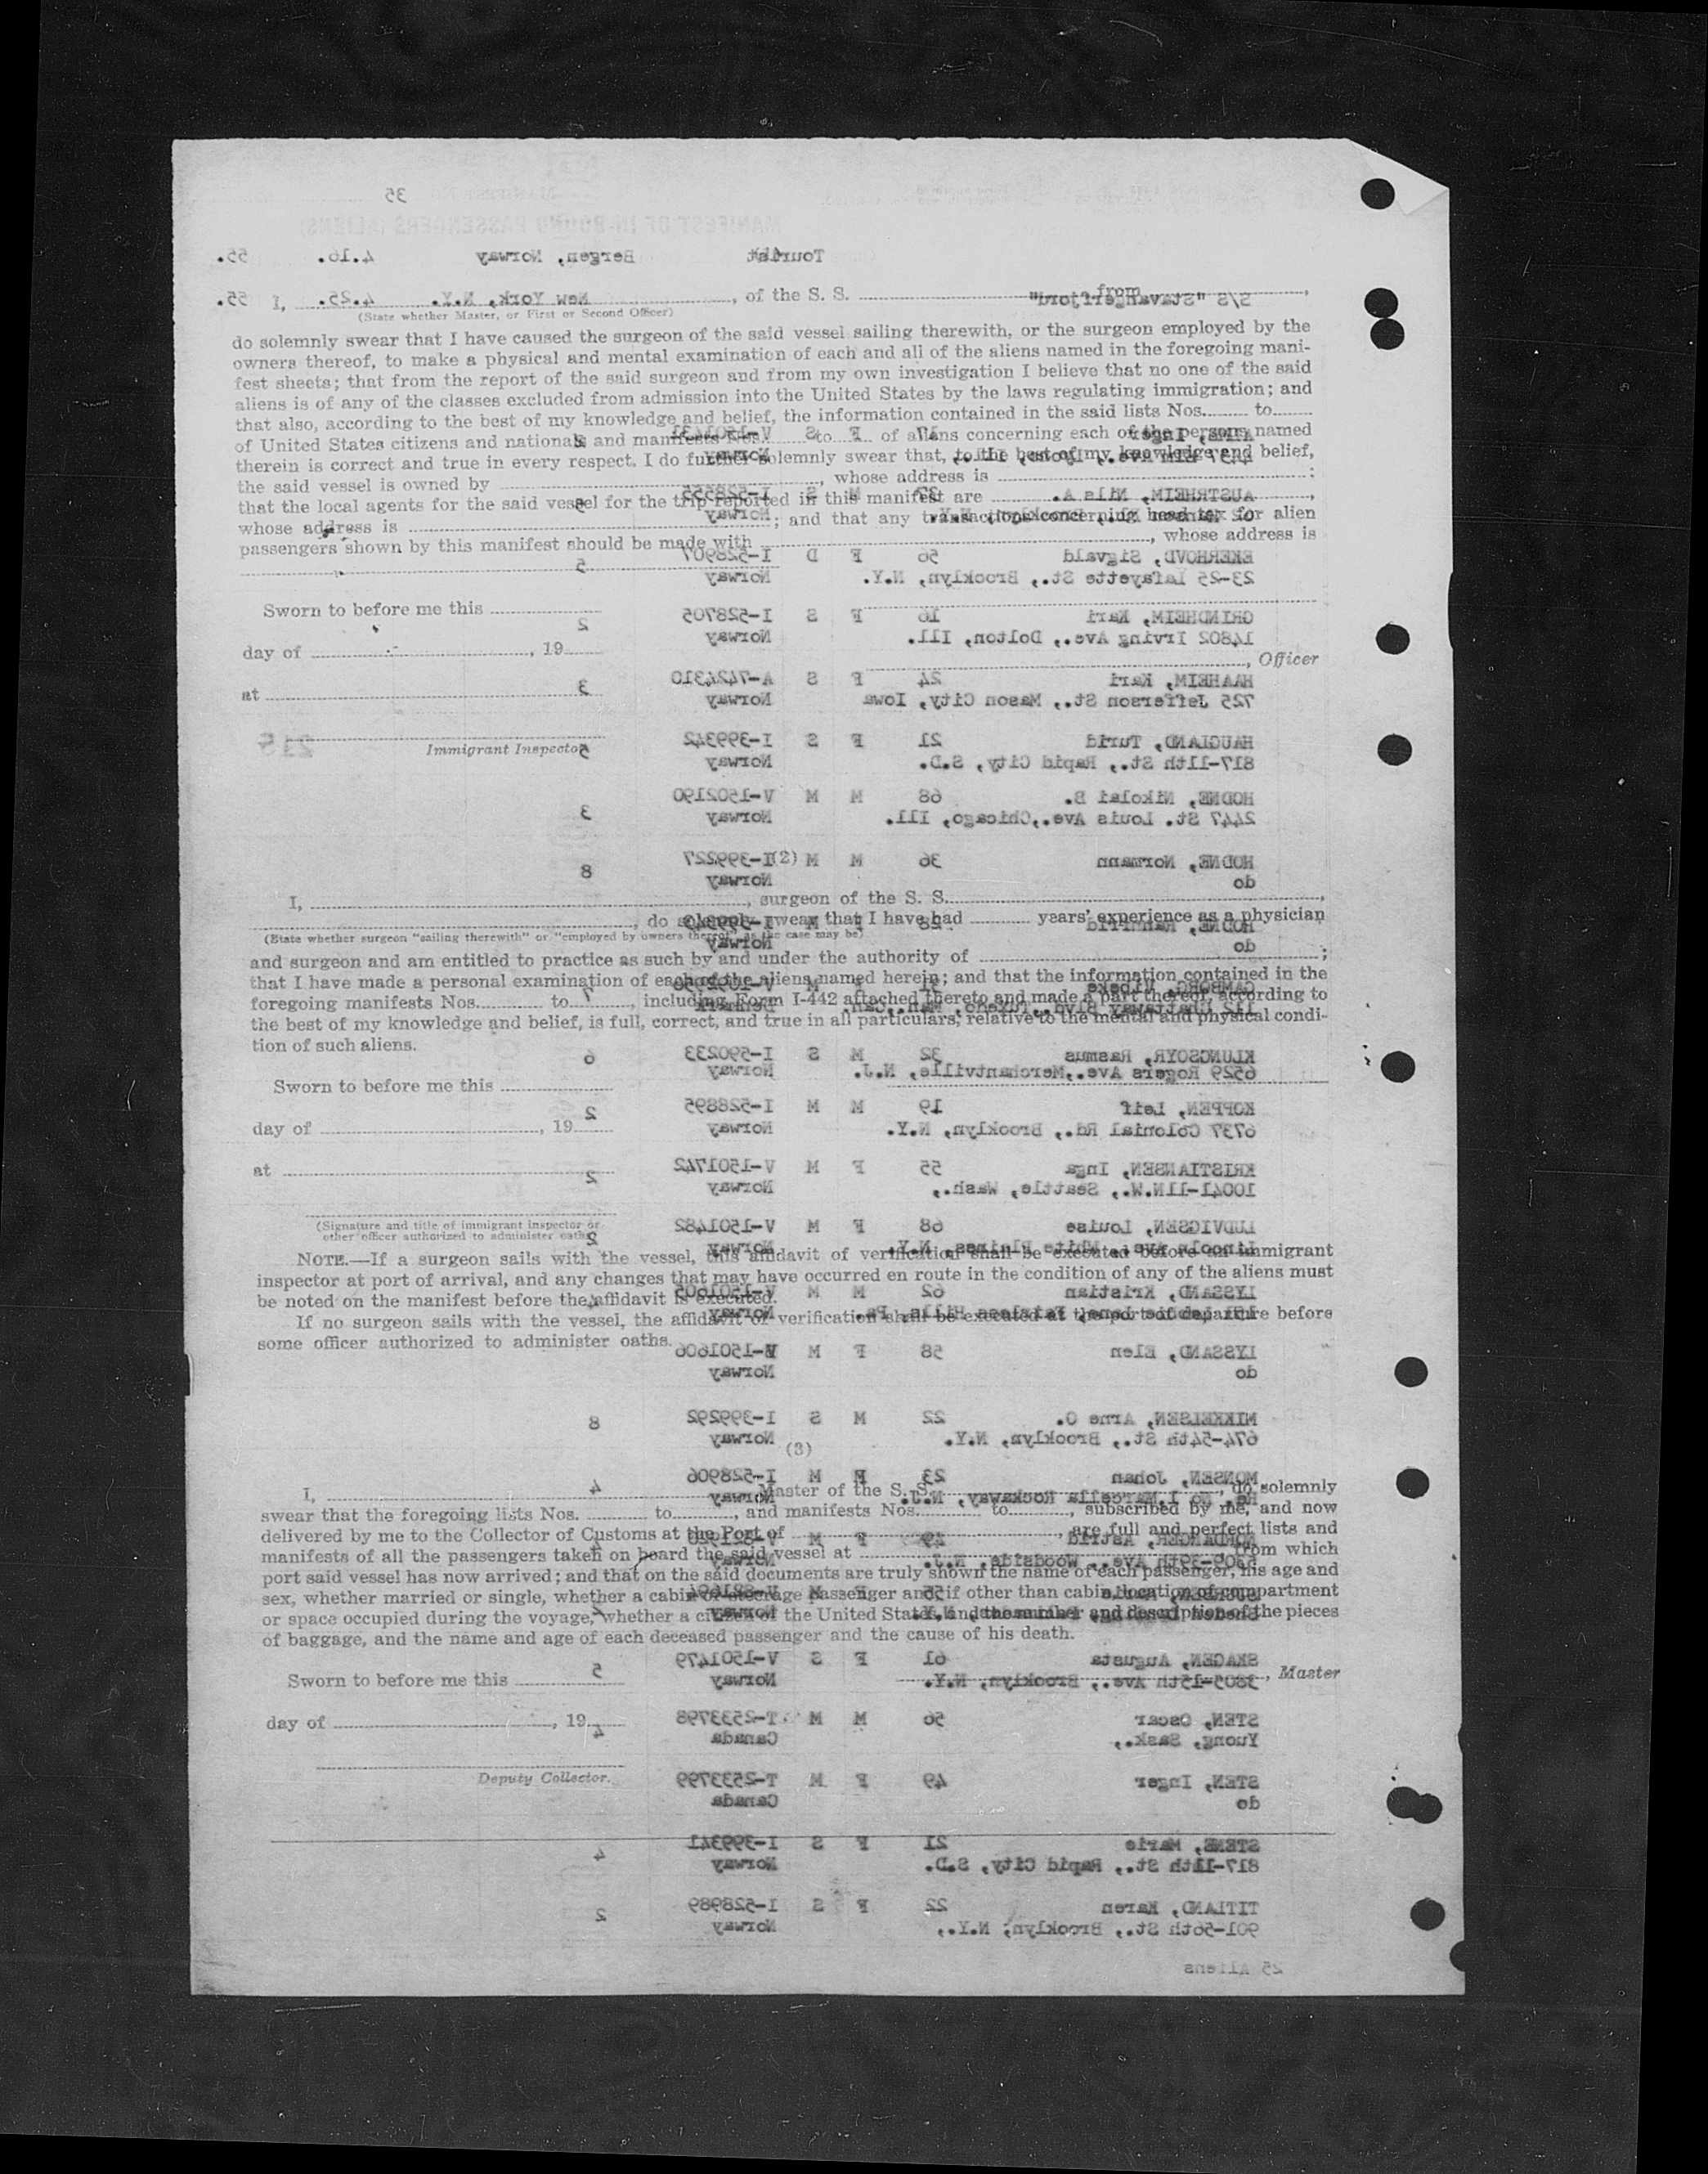 35
MANIFEST OF IN-BOUND PASSENGERS (ALIENS)
Tourist Bergen, Norway 4.16. 55.
S/S "Stavangerfjord" New York, N.Y. 4.25. 55.
I, , of the S. S. from ,
(State whether Master, or First or Second Officer)
do solemnly swear that I have caused the surgeon of the said vessel sailing therewith, or the surgeon employed by the
owners thereof, to make a physical and mental examination of each and all of the aliens named in the foregoing mani-
fest sheets; that from the report of the said surgeon and from my own investigation I believe that no one of the said
aliens is of any of the classes excluded from admission into the United States by the laws regulating immigration; and
that also, according to the best of my knowledge and belief, the information contained in the said lists Nos. to
of United States citizens and nationals and manifests Nos. to of aliens concerning each of the persons named
therein is correct and true in every respect. I do further solemnly swear that, to the best of my knowledge and belief,
the said vessel is owned by , whose address is ;
that the local agents for the said vessel for the trip reported in this manifest are ,
AUSTRHEIM, Nils A. M S I-528555
Norway
whose address is ; and that any transactions concerning head tax for alien
passengers shown by this manifest should be made with , whose address is
EKERHOVD, Sigvald 56 F D I-528907 5
23-25 Lafayette St., Brooklyn, N.Y. Norway
Sworn to before me this
GRINDHEIM, Kari 16 F S I-528705 2
14802 Irving Ave., Dolton, Ill. Norway
day of , 19
, Officer
HAAHEIM, Kari 24 F S A-7424310 3
725 Jefferson St., Mason City, Iowa Norway
at
HAUGLAND, Turid 21 F S I-399342 5
817-11th St., Rapid City, S.D. Norway
Immigrant Inspector
HODNE, Nikolai B. 68 M M V-1502190 3
2447 St. Louis Ave.,Chicago, Ill. Norway
HODNE, Normann 36 M M I-399227 8
do Norway
(2)
I, , surgeon of the S. S. ,
, do solemnly swear that I have had years' experience as a physician
(State whether surgeon "sailing therewith" or "employed by owners thereof" as the case may be)
HODNE, Rannfrid 28 M I-399343
do Norway
and surgeon and am entitled to practice as such by and under the authority of ;
that I have made a personal examination of each of the aliens named herein; and that the information contained in the
foregoing manifests Nos. to , including Form I-442 attached thereto and made a part thereof, according to
the best of my knowledge and belief, is full, correct, and true in all particulars, relative to the mental and physical condi-
tion of such aliens.
KLUNGSOYR, Rasmus 32 M S I-590233 6
6529 Rogers Ave.,Merchantville, N.J. Norway
Sworn to before me this
KOPPEN, Leif 19 M M I-528895 2
6737 Colonial Rd., Brooklyn, N.Y. Norway
day of , 19
KRISTIANSEN, Inga 55 F M V-1501742 2
10041-11N.W., Seattle, Wash., Norway
at
LUDVIGSEN, Louise 68 F M V-1501482 2
Lincoln Ave., White Plains, N.Y. Norway
(Signature and title of immigrant inspector or
other officer authorized to administer oaths)
NOTE.—If a surgeon sails with the vessel, this affidavit of verification shall be executed before an immigrant
inspector at port of arrival, and any changes that may have occurred en route in the condition of any of the aliens must
be noted on the manifest before the affidavit is executed.
LYSSAND, Kristian 62 M M V-1501605
Norway
If no surgeon sails with the vessel, the affidavit of verification shall be executed at the port of departure before
some officer authorized to administer oaths.
LYSSAND, Elen 58 F M V-1501606
do Norway
MIKKELSEN, Arne O. 22 M S I-399292 8
674-54th St., Brooklyn, N.Y. Norway
(3)
MONSEN, Johan 23 M I-528906 4
Marcella Rockaway, N.J. Norway
I, , Master of the S. S. , do solemnly
swear that the foregoing lists Nos. to , and manifests Nos. to , subscribed by me, and now
delivered by me to the Collector of Customs at the Port of , are full and perfect lists and
NORDANGER, Astrid 49 F M
manifests of all the passengers taken on board the said vessel at from which
port said vessel has now arrived; and that on the said documents are truly shown the name of each passenger, his age and
sex, whether married or single, whether a cabin or steerage passenger and if other than cabin, location of compartment
or space occupied during the voyage, whether a citizen of the United States, and the number and description of the pieces
of baggage, and the name and age of each deceased passenger and the cause of his death.
SKAGEN, Augusta 61 F S V-1501479 5
3805-15th Ave., Brooklyn, N.Y. Norway
Sworn to before me this , Master
STEN, Oscar 56 M M T-2533798 4
Yuong, Sask., Canada
day of , 19
STEN, Inger 49 F M T-2533799
do Canada
Deputy Collector.
STENE, Marie 21 F S I-399341 4
817-11th St., Rapid City, S.D. Norway
TITLAND, Karen 22 F S I-528989 2
901-56th St., Brooklyn, N.Y., Norway
25 Aliens